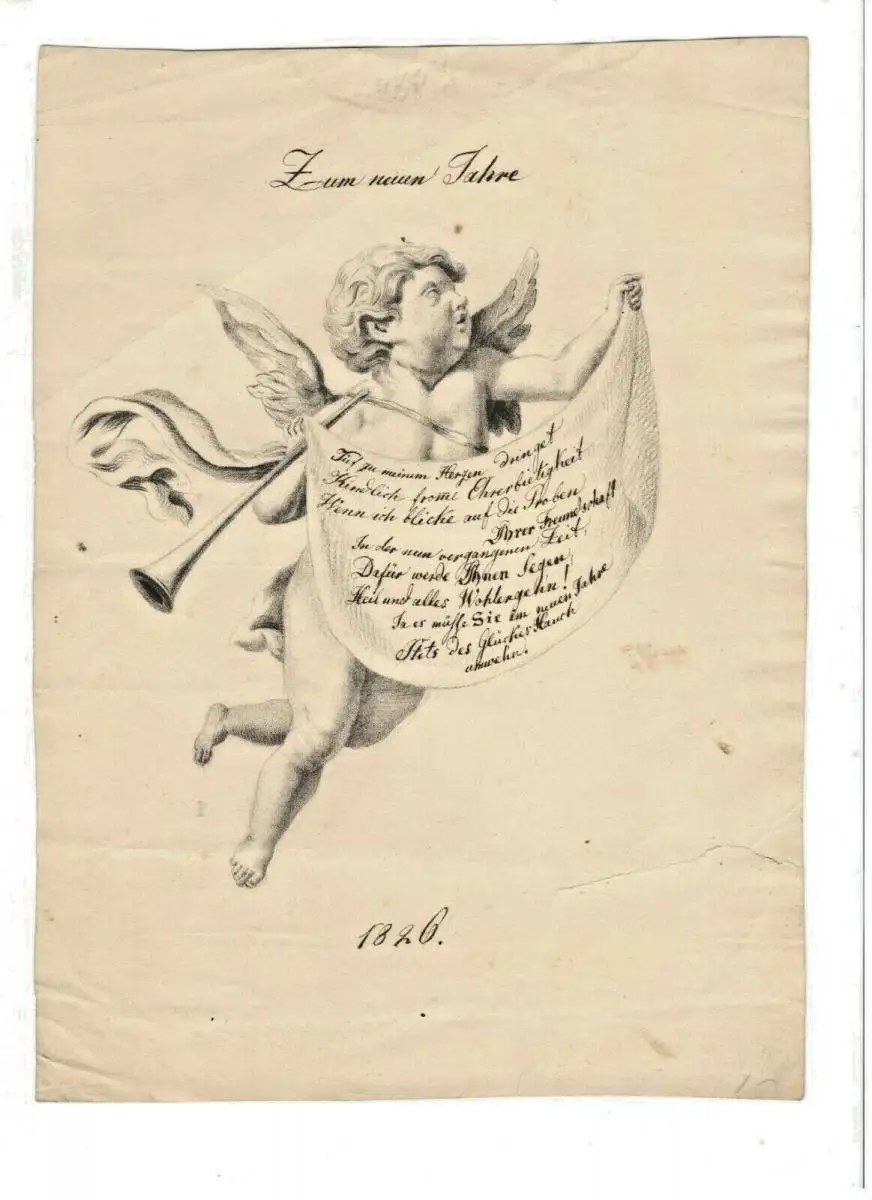 Zum neuen Jahre
Tief zu meinem Herzen dringet
Kindlich fromme Ehrerbietigkeit
Wenn ich blicke auf die Proben
Ihrer Freundschaft
In der nun vergangenen Zeit,
Dafür werde Ihnen Segen,
Heil und alles Wohlergehn!
Ja es müsse Sie im neuen Jahre
Stets des Glückes Hauch
anwehn.
1826.